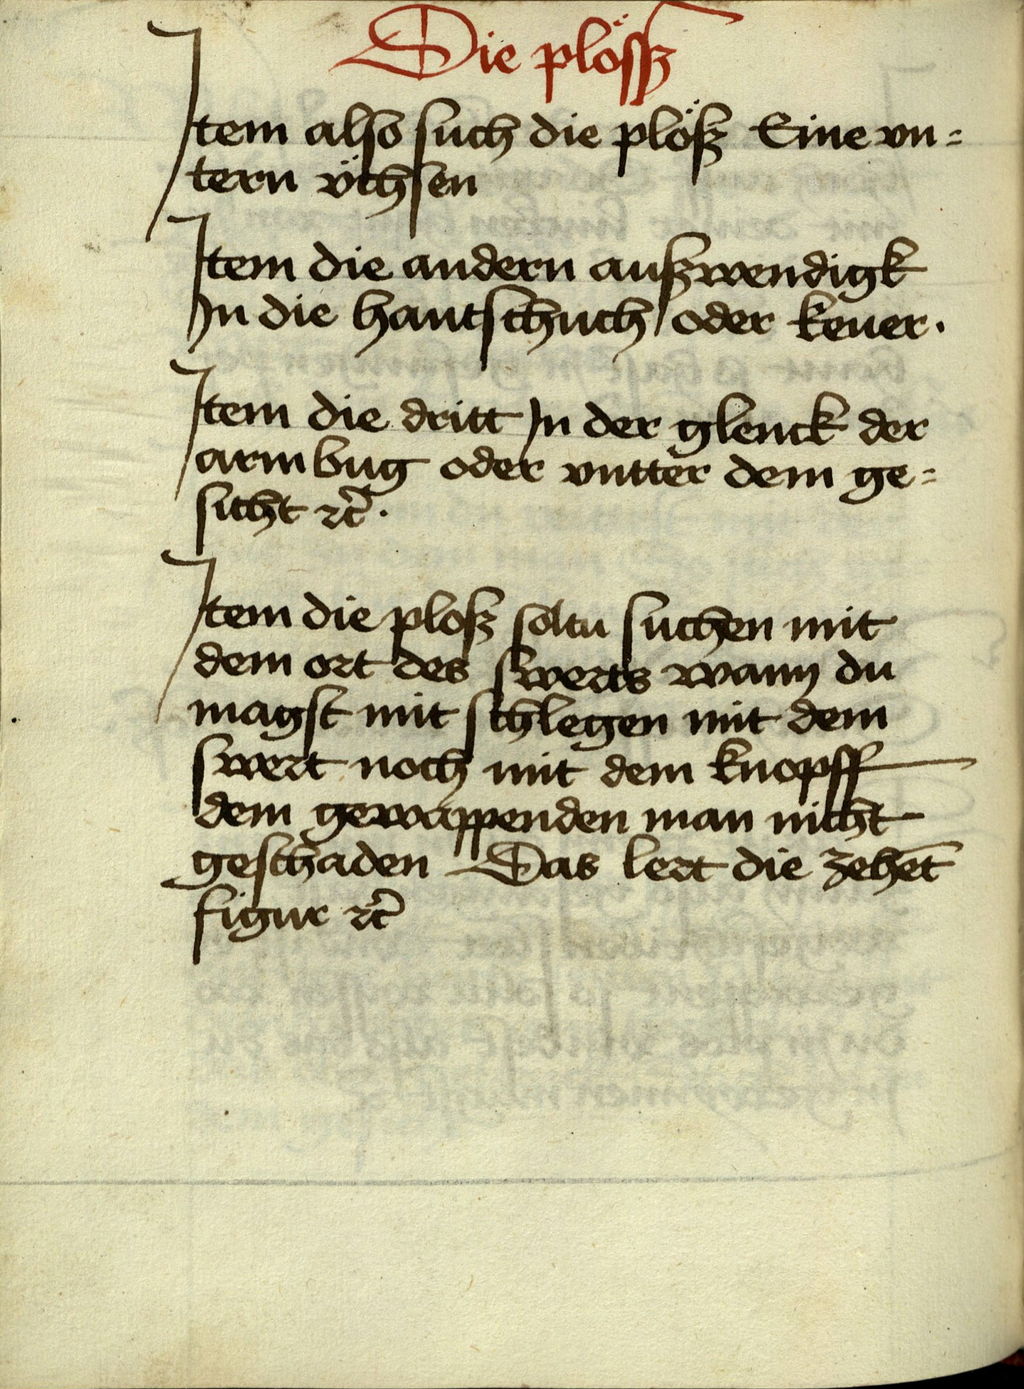 Die plössz
Item also such die plösz Eine vn=
tern v̈chsen
Item die andern auszwendigk
In die hantschuch oder keuer.
Item die dritt In der glenck der
armbug oder vntter dem ge=
sicht ⁊c̃.
Item die plosz soltu suchen mit
dem ort des swerts wann du
magst mit schlegen mit dem
swert noch mit dem knopff
dem gewappenden man nicht
geschaden Das lert die zehet̄
figur ⁊c̃